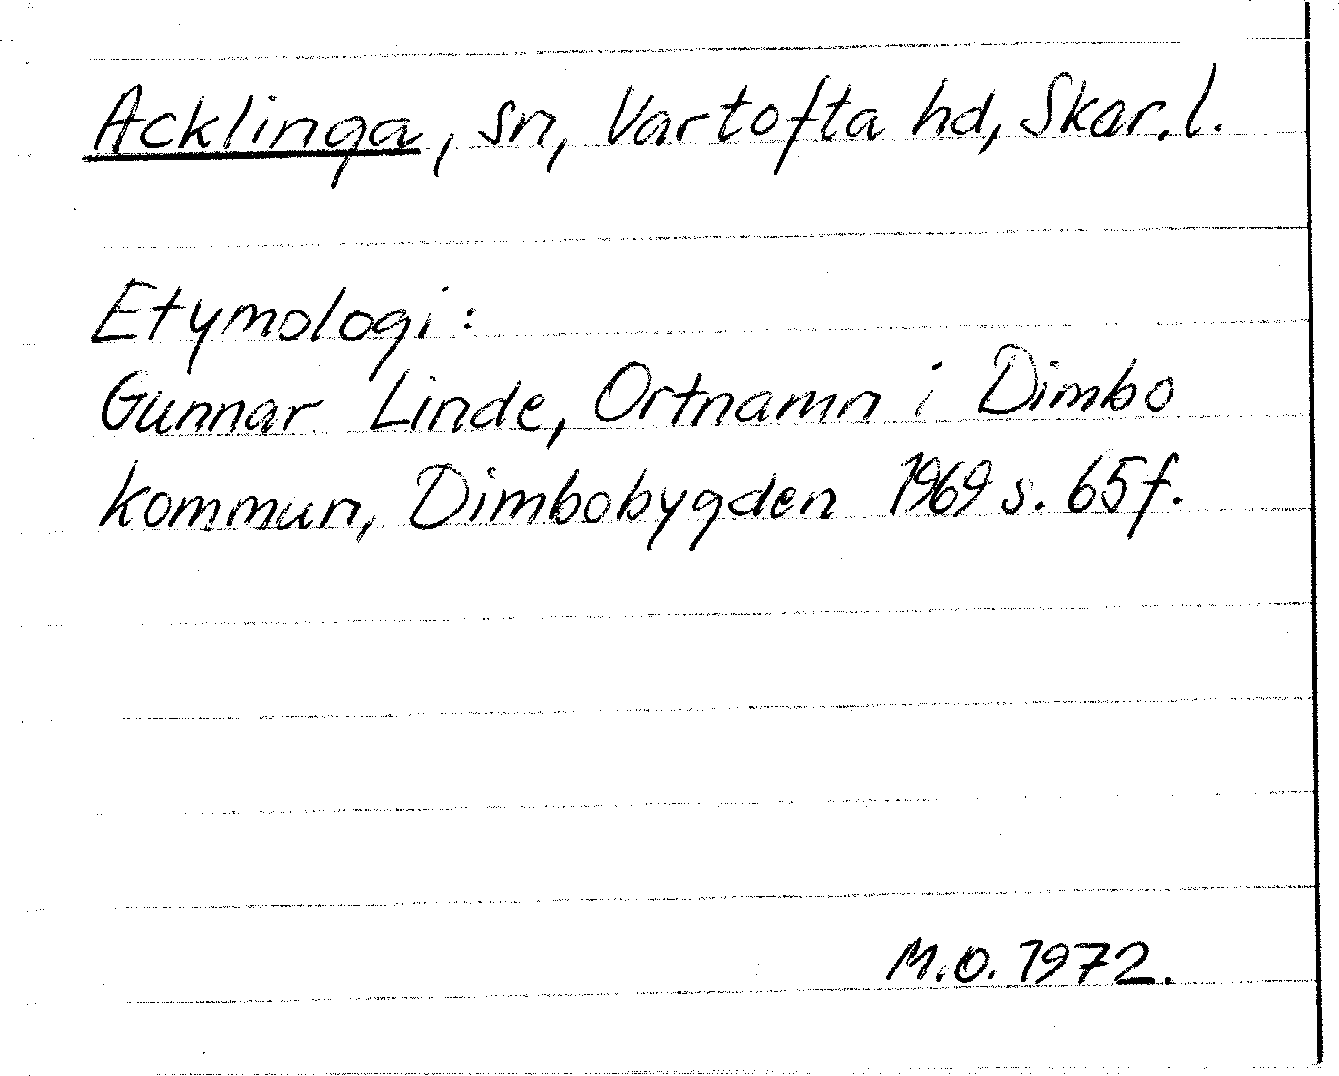 Acklinga, sn, Vartofta hd, Skar. l.
Etymologi:
Gunnar Linde, Ortnamn i Dimbo
kommun, Dimbobygden 1969 s. 65f.
M.O. 1972.